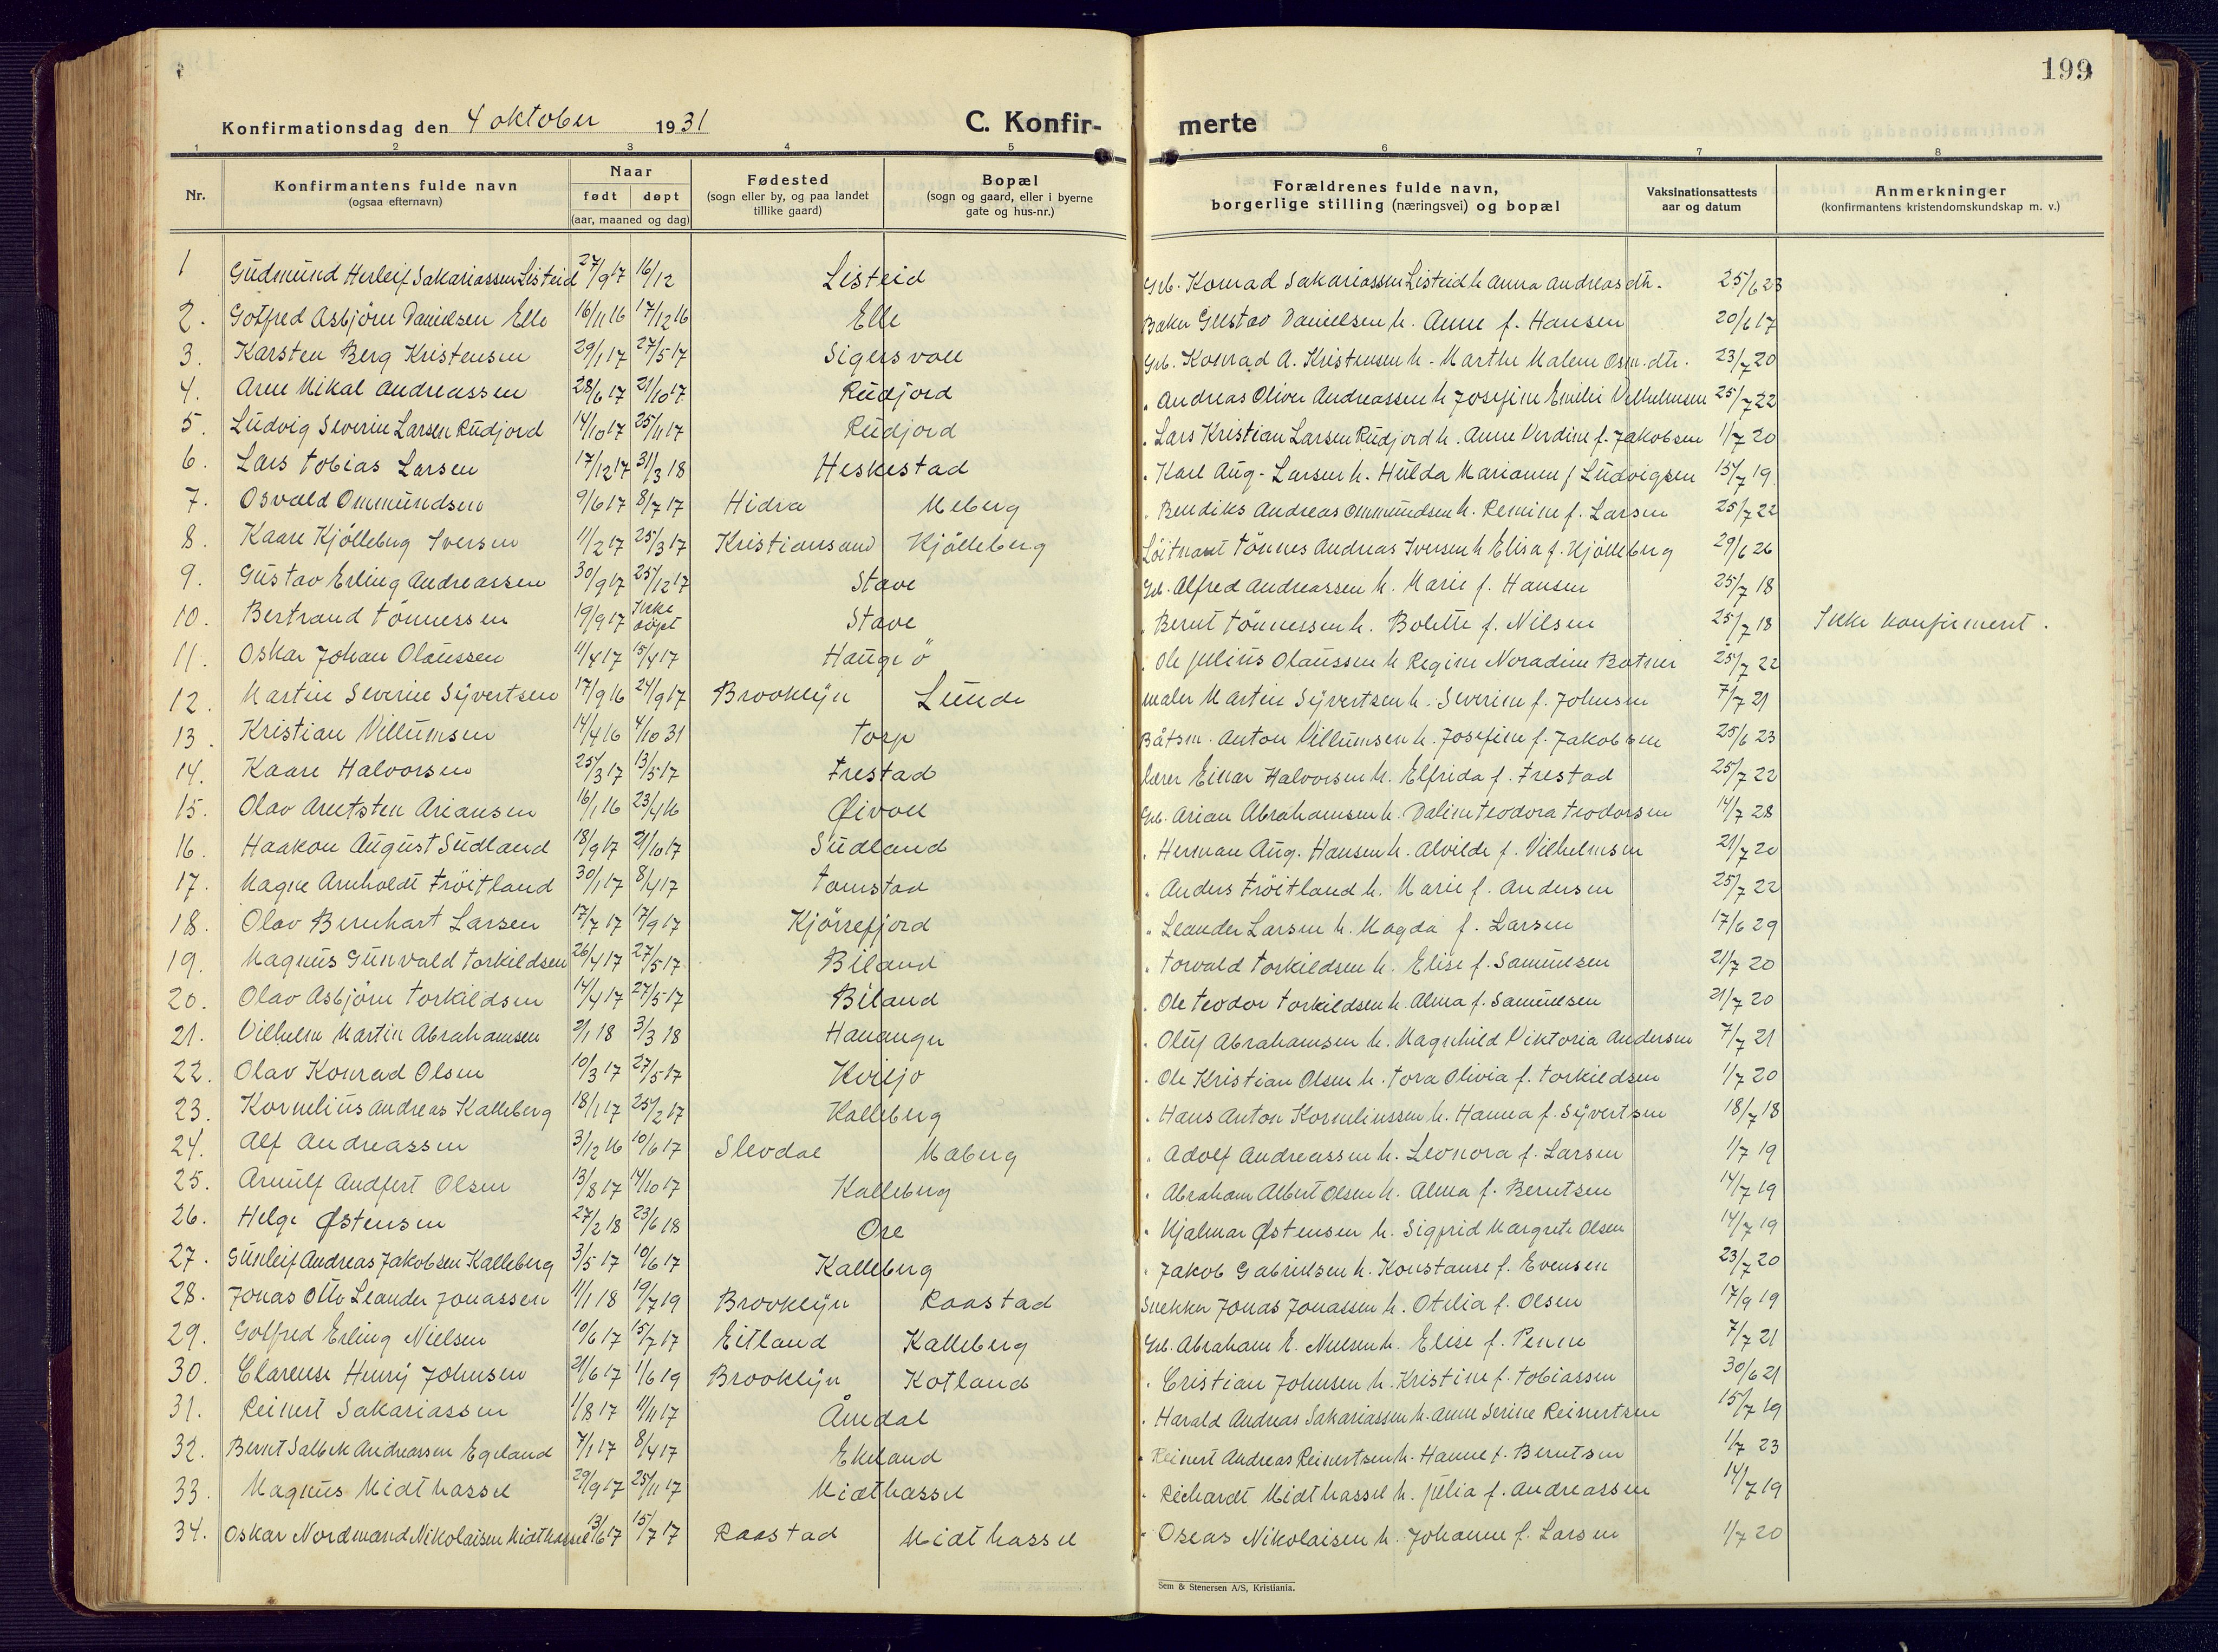 199
Konfirmationsdag den 4 oktober 1931 C. Konfir- merte
1 2 3 4 5 6 7 8
Nr. Konfirmantens fulde navn (ogsaa efternavn) Naar født døpt (aar, maaned og dag) Fødested (sogn eller by, og paa landet tillike gaard) Bopæl (sogn og gaard, eller i byerne gate og hus-nr.) Forældrenes fulde navn, borgerlige stilling (næringsvei) og bopæl Vaksinationsattests aar og datum Anmerkninger (konfirmantens kristendomskundskap m. v.)
1 Gudmund Herleif Sakariassen Listeid 27/9 17 16/12 Listeid Grb. Konrad Sakariassen Listeid h Anna Andreasdtr. 25/6 23
2. Gotfred Asbjörn Danielsen Elle 16/11 16 17/12 16 Elle Baker Gustav Danielsen h. Anne f. Hansen 20/6 17
3. Karsten Berg Kristensen 29/1 17 27/5 17 Sigersvoll Grb. Konrad A. Kristensen h. Marthe Malene Osm.dtr. 23/7 20
4. Arne Mikal Andreassen 28/6 17 21/10 17 Rudjord . Andreas Oliver Andreassen h Josefine Emilie Vilhelmsen 25/7 22
5. Ludvig Severin Larsen Rudjord 14/10 17 25/11 17 Rudjord . Lars Kristian Larsen Rudjord h. Anne Verdine f. Jakobsen 1/7 20
6. Lars Tobias Larsen 17/12 17 31/3 18 Heskestad . Karl Aug. Larsen h. Hulda Marianne f Ludvigsen 15/7 19
7. Osvald Ommundsen 9/6 17 8/7 17 Hidra Meberg . Bendiks Andreas Ommundsen h. Remine f. Larsen 25/7 22
8. Kaare Kjölleberg Iversen 11/2 17 25/3 17 Kristiansand Kjölleberg Löitnant Tönnes Andreas Iversen h Elisa f. Kjölleberg 29/6 26
9. Gustav Erling Andreassen 30/9 17 25/12 17 Stave Grb. Alfred Andreassen h. Marie f. Hansen 25/7 18
10. Bertrand Tönnessen 19/9 17 Ikke döpt Stave . Bernt Tönnessen h. Bolette f. Nilsen 25/7 18 Ikke konfirmert.
11. Oskar Johan Olaussen 11/4 17 15/4 17 Hauge ö . Ole Julius Olaussen h Regine Noradine Botner 25/7 22
12. Martin Severin Syvertsen 17/9 16 24/9 17 Brooklyn Lunde maler Martin Syvertsen h. Severine f. Johnsen 7/7 21
13. Kristian Villumsen 14/4 16 4/10 31 Torp Båtsm. Anton Villumsen h. Josefine f. Jakobsen 25/6 23
14. Kaare Halvorsen 25/3 17 13/5 17 Frestad lærer Einar Halvorsen h. Elfrida f. Frestad 25/7 22
15. Olav Arntsten Ariansen 16/1 16 23/4 16 Øivoll Grb. Arian Abrahamsen h. Daline Teodora Teodorsen 14/7 28
16. Haakon August Sudland 18/9 17 21/10 17 Sudland . Herman Aug. Hansen h. Alvilde f. Vilhelmsen 21/7 20
17. Magne Arnholdt Fröitland 30/1 17 8/4 17 Tomstad . Anders Fröitland h. Marie f. Andersen 25/7 22
18. Olav Bernhart Larsen 17/7 17 17/9 17 Kjörrefjord . Leander Larsen h. Magda f. Larsen 17/6 29
19. Magnus Gunvald Torkildsen 26/4 17 27/5 17 Biland . Torvald Torkildsen h. Elise f. Samuelsen 21/7 20
20. Olav Asbjörn Torkildsen 14/4 17 27/5 17 Biland . Ole Teodor Torkildsen h. Alma f. Samuelsen 21/7 20
21. Vilhelm Martin Abrahamsen 2/1 18 3/3 18 Hananger . Oluf Abrahamsen h. Magnhild Viktoria Andersen 7/7 21
22. Olav Konrad Olsen 10/3 17 27/5 17 Kviljo . Ole Kristian Olsen h. Tora Olivia f. Torkildsen 1/7 20
23. Kornelius Andreas Kalleberg 18/1 17 25/2 17 Kalleberg . Hans Anton Korneliussen h. Hanna f. Syvertsen 18/7 18
24. Alf Andreassen 3/12 16 10/6 17 Slevdal Maberg . Adolf Andreassen h. Leonora f. Larsen 1/7 19
25. Arnulf Andfert Olsen 13/8 17 14/10 17 Kalleberg . Abraham Albert Olsen h. Alma f. Berntsen 14/7 19
26. Helge Østensen 27/2 18 23/6 18 Ore . Hjalmar Østensen h. Sigfrid Margrete Olsen 14/7 19
27. Gunleif Andreas Jakobsen Kalleberg 3/5 17 10/6 17 Kalleberg . Jakob Gabrielsen h. Konstanse f. Evensen 23/7 20
28. Jonas Otto Leander Jonassen 11/1 18 19/7 19 Brooklyn Raastad Snekker Jonas Jonassen h. Otelia f. Olsen 17/9 19
29. Golfred Erling Nielsen 10/6 17 15/7 17 Eitland Kalleberg Grb. Abraham E. Nielsen h. Elise f. Penne 7/7 21
30. Clarense Henry Johnsen 21/6 17 1/6 19 Brooklyn Kotland . Cristian Johnsen h. Kristine f. Tobiassen 30/6 21
31. Reinert Sakariassen 1/8 17 11/11 17 Åmdal . Harald Andreas Sakariassen h. Anne Serine Reinertsen 15/7 19
32. Bernt Salbek Andreassen Egeland 7/1 17 8/4 17 Ekeland . Reinert Andreas Reinertsen h. Hanne f. Berntsen 1/7 23
33. Magnus Midthassel 29/9 17 25/11 17 Midthassel . Richardt Midthassel h. Julia f. Andreassen 14/7 19
34. Oskar Nordmand Nikolaisen Midthassel 13/6 17 15/7 17 Raastad Midthassel . Oseas Nikolaisen h. Johanne f. Larsen 1/7 20
Sem & Stenersen A/S, Kristiania.